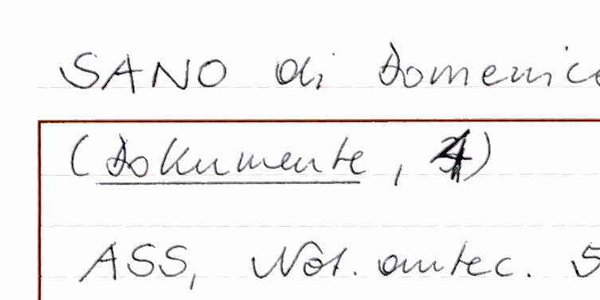 SANO di Domenico
(Dokumente, 4)
ASS, Not. antec. 5